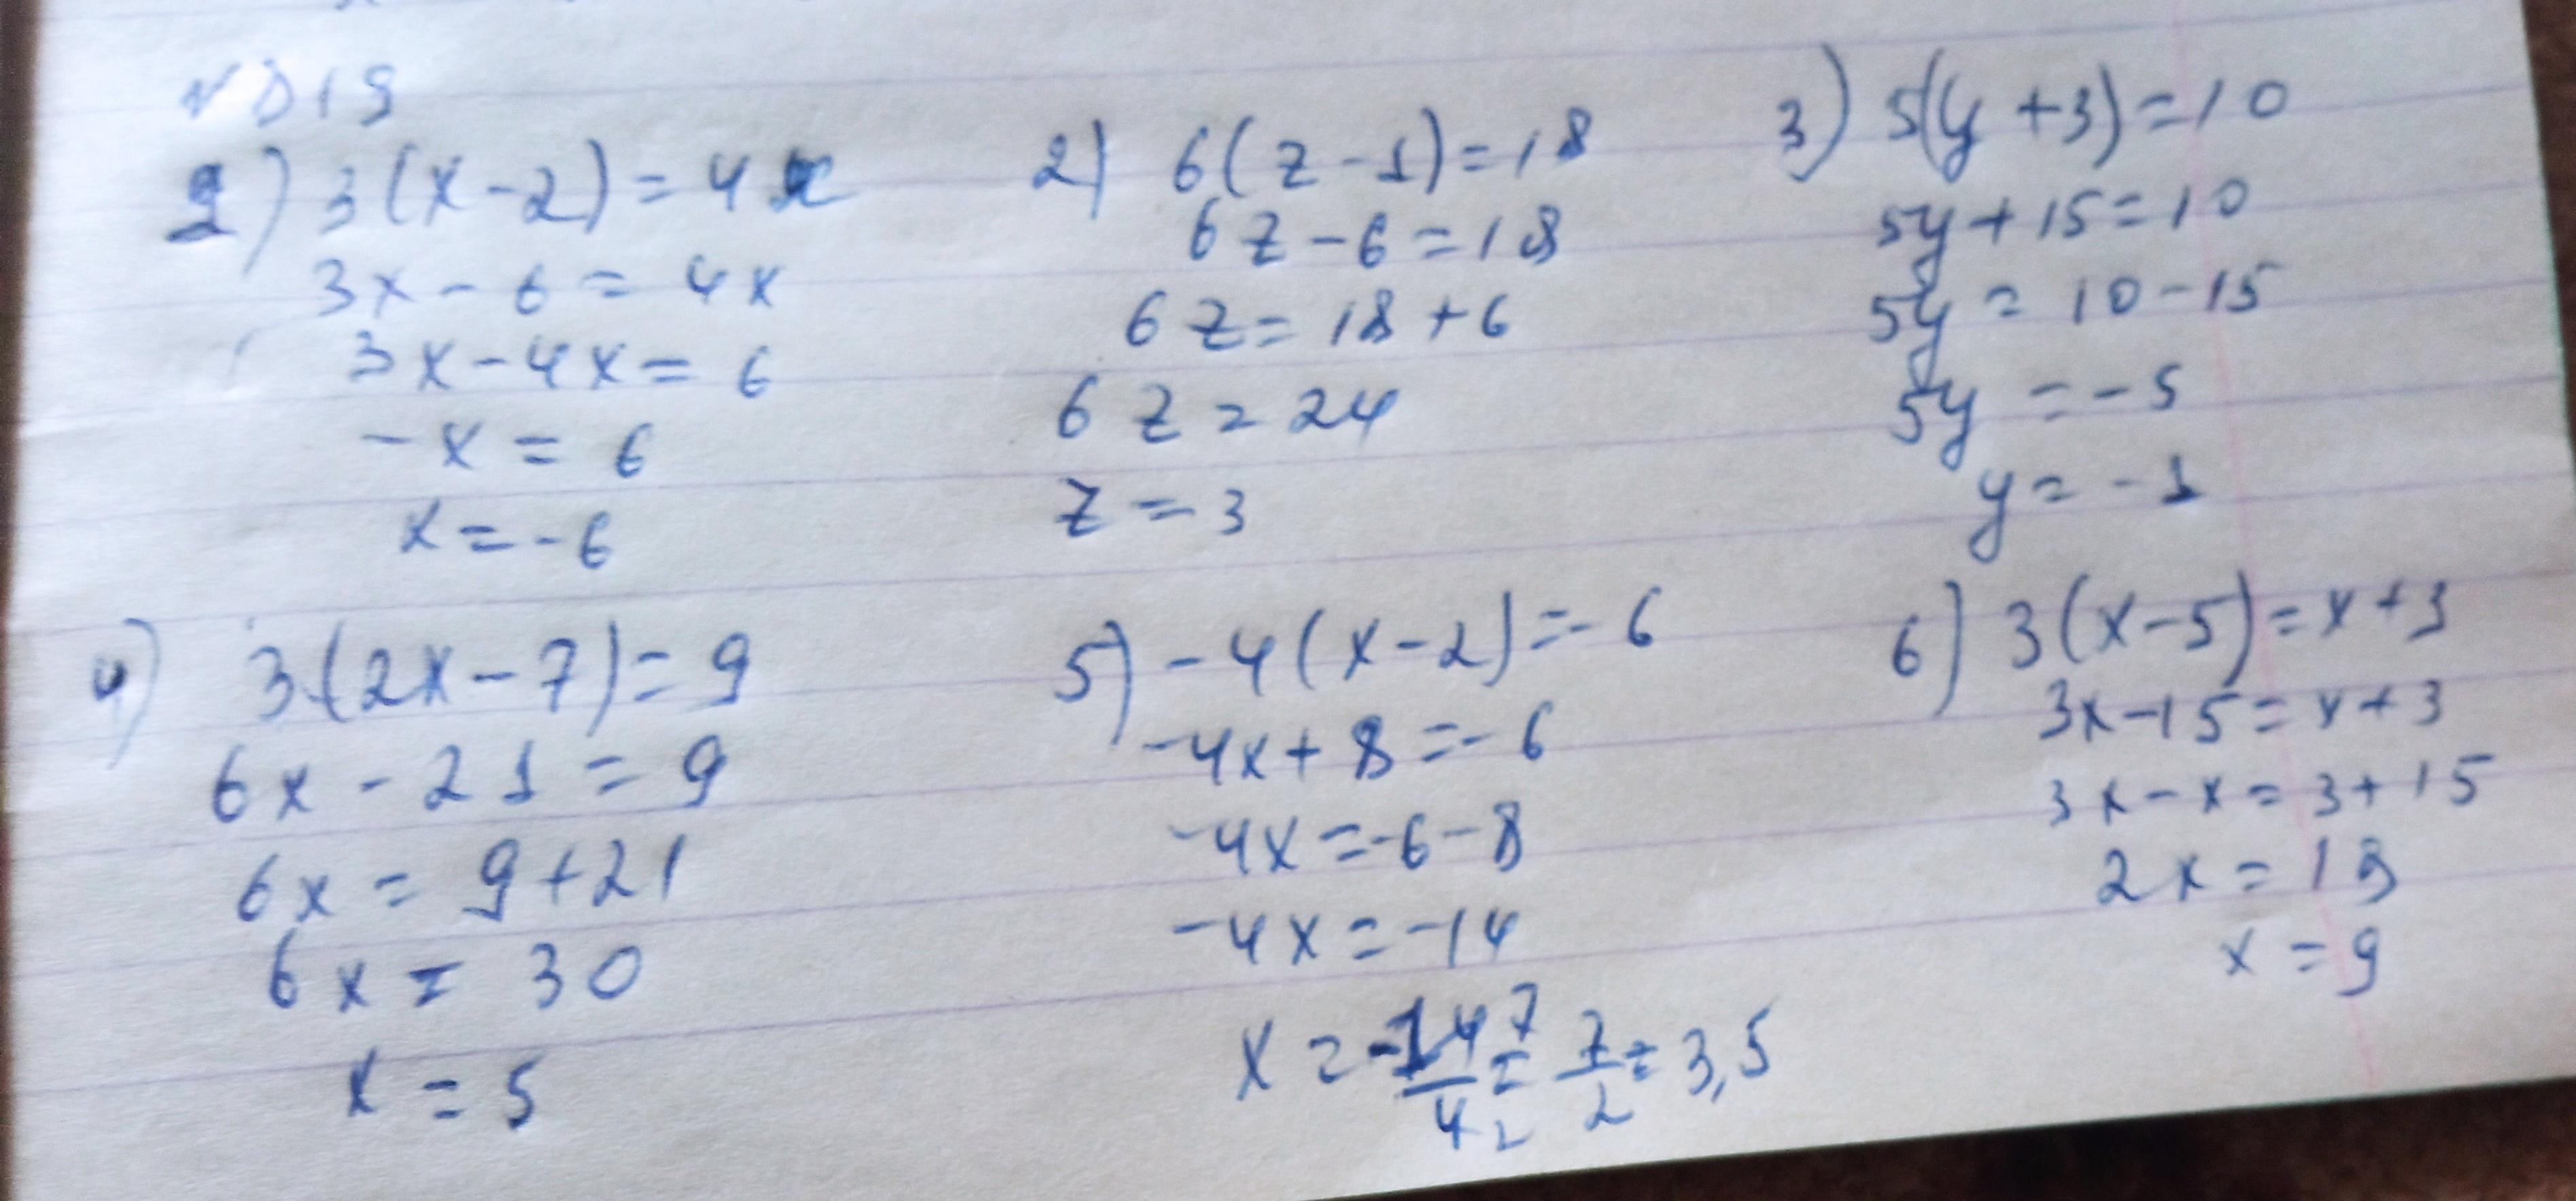 N D19
1) 3(x-2)=4x
3x-6=4x
3x-4x=6
-x=6
x=-6
2) 6(z-1)=18
6z-6=18
6z=18+6
6z=24
z=3
3) 5(y+3)=10
5y+15=10
5y=10-15
5y=-5
y=-1
4) 3(2x-7)=9
6x-21=9
6x=9+21
6x=30
x=5
5) -4(x-2)=-6
-4x+8=-6
-4x=-6-8
-4x=-14
x=-14 7/4 2=7/2=3,5
6) 3(x-5)=x+3
3x-15=x+3
3x-x=3+15
2x=18
x=9